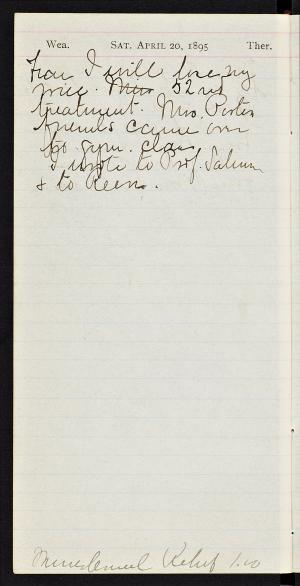 Wea. SAT. APRIL 20, 1895 Ther.
I will lose my
52nd
treatment. Mrs. Porter
friends came over
to gym. class
I wrote to Prof. Salmon
& to Reem.
Relief 1.00